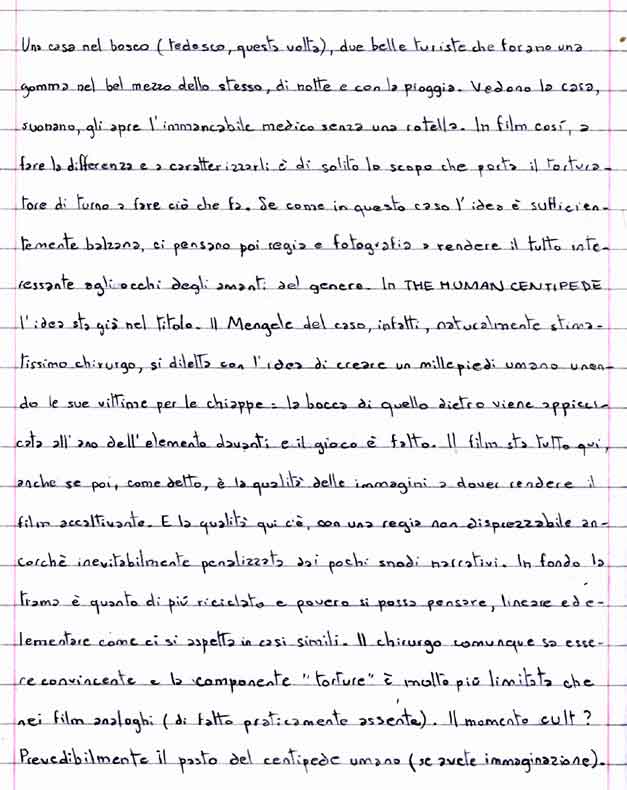 Una casa nel bosco (tedesco, questa volta), due belle turiste che forano una
gomma nel bel mezzo dello stesso, di notte e con la pioggia. Vedono la casa,
suonano, gli apre l'immancabile medico senza una rotella. In film così, a
fare la differenza e a caratterizzarli è di solito lo scopo che porta il tortura-
tore di turno a fare ciò che fa. Se come in questo caso l'idea è sufficien-
temente balzana, ci pensano poi regia e fotografia a rendere il tutto inte-
ressante agli occhi degli amanti del genere. In THE HUMAN CENTIPEDE
l'idea sta già nel titolo. Il Mengele del caso, infatti, naturalmente stima-
tissimo chirurgo, si diletta con l'idea di creare un millepiedi umano unen-
do le sue vittime per le chiappe: la bocca di quello dietro viene appicci-
cata all'ano dell'elemento davanti e il gioco è fatto. Il film sta tutto qui,
anche se poi, come detto, è la qualità delle immagini a dover rendere il
film accattivante. E la qualità qui c'è, con una regia non disprezzabile an-
corchè inevitabilmente penalizzata dai pochi snodi narrativi. In fondo la
trama è quanto di più riciclato e povero si possa pensare, lineare ed e-
lementare come ci si aspetta in casi simili. Il chirurgo comunque sa esse-
re convincente e la componente "torture" è molto più limitata che
nei film analoghi (di fatto praticamente assente). Il momento cult?
Prevedibilmente il pasto del centipede umano (se avete immaginazione).